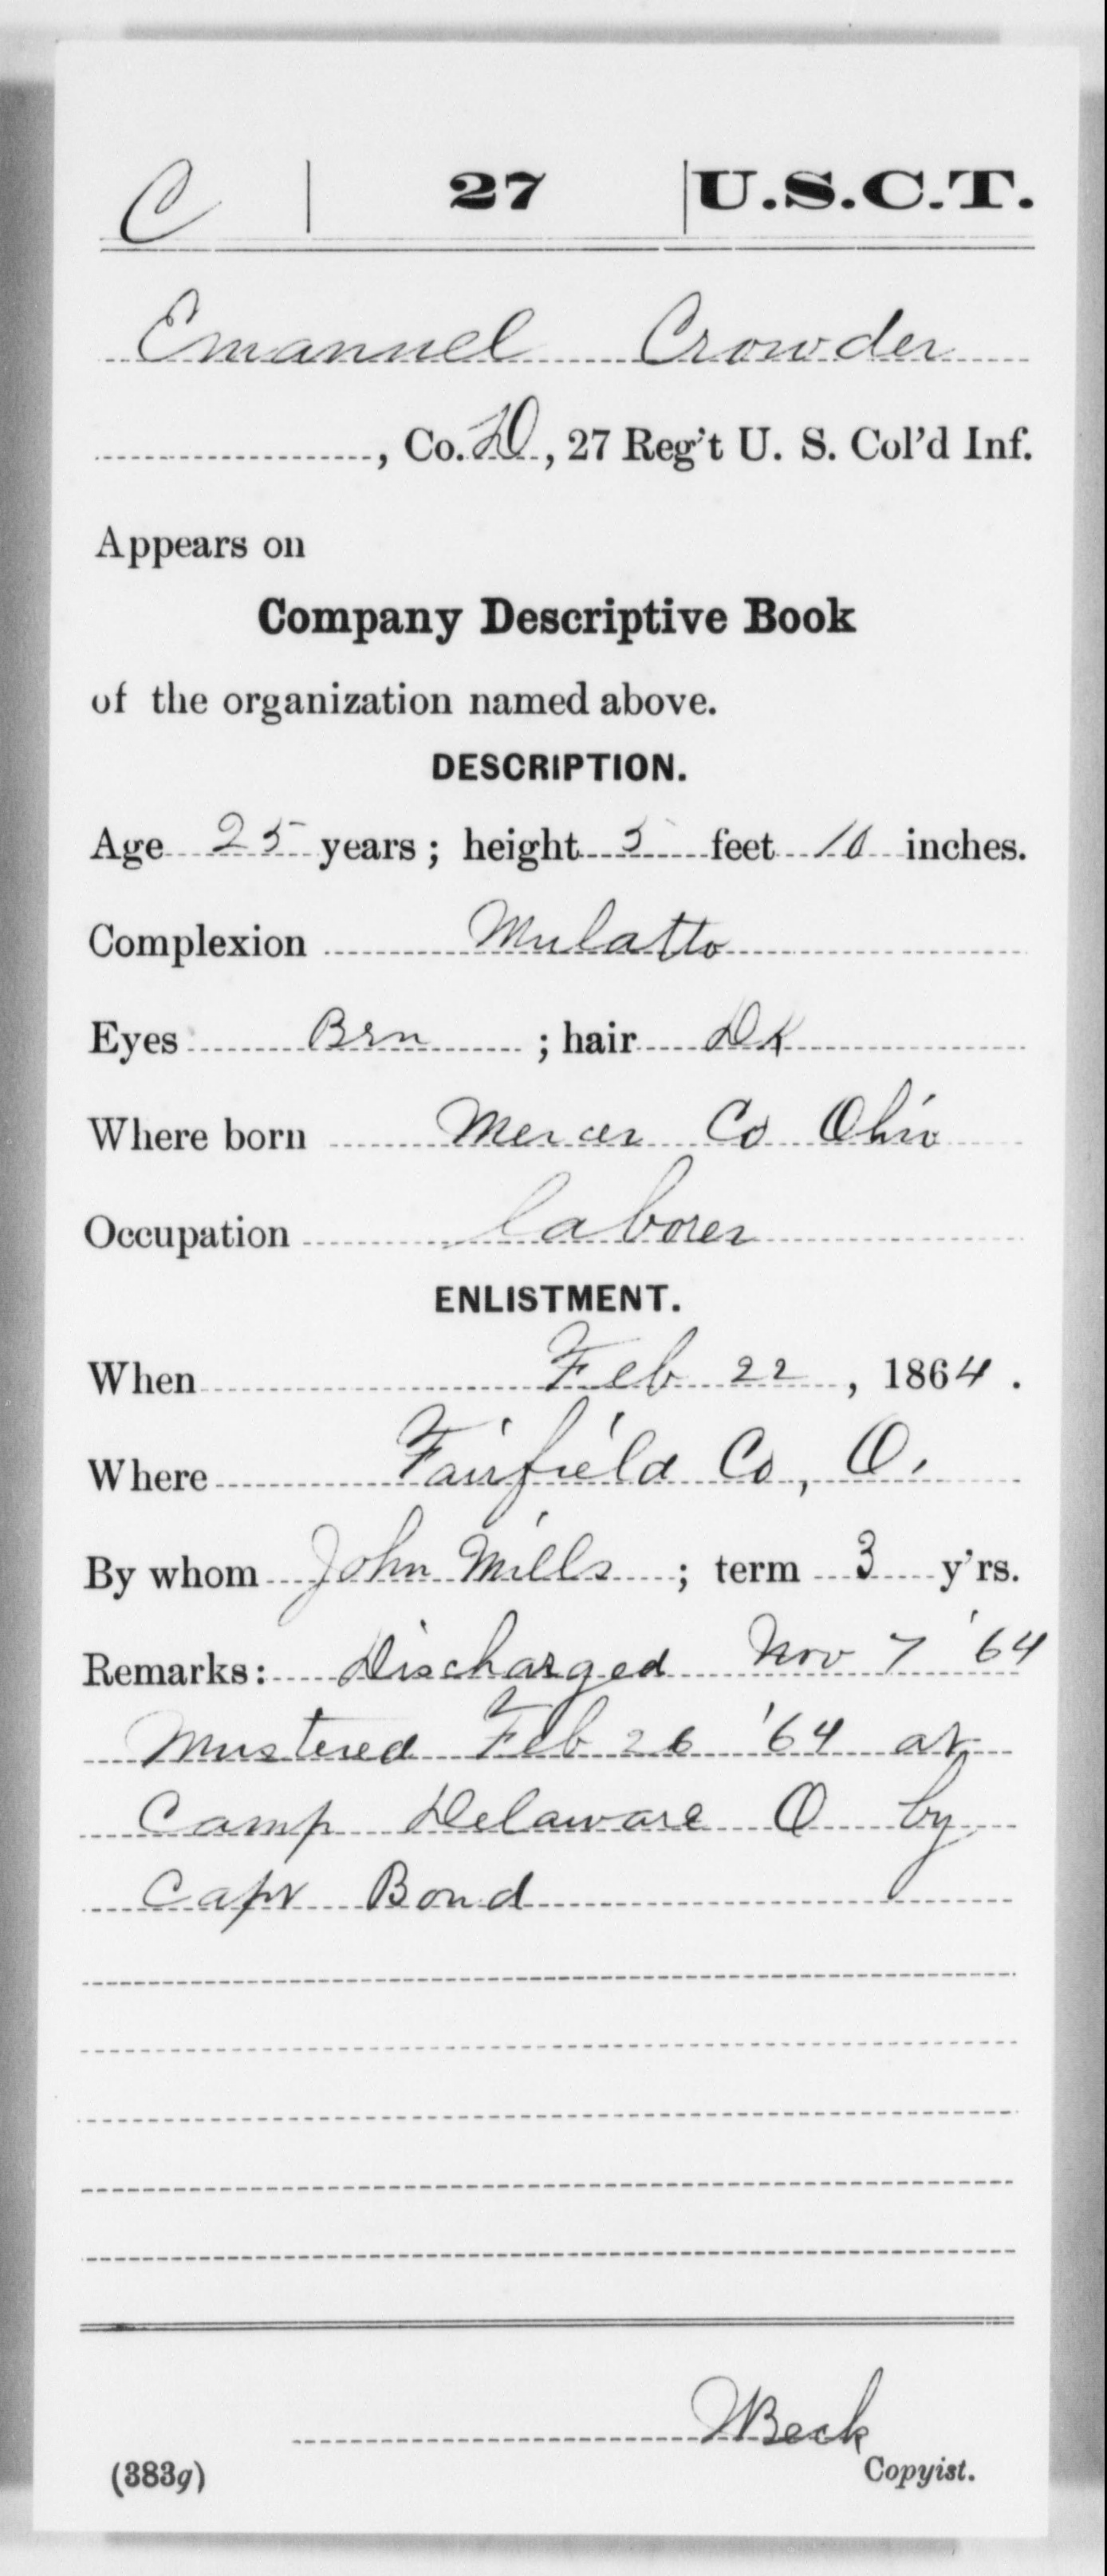 C | 27 | U.S.C.T.
Emanuel Crowder
, Co. D, 27 Reg't U. S. Col'd Inf.
Appears on
Company Descriptive Book
of the organization named above.
DESCRIPTION.
Age 25 years; height 5 feet 10 inches.
Complexion Mulatto
Eyes Brn ; hair Dk
Where born Mercer Co Ohio
Occupation laborer
ENLISTMENT.
When Feb 22, 1864.
Where Fairfield Co, O.
By whom John Mills ; term 3 y'rs.
Remarks: Discharged Nov 7 '64
Mustered Feb 26 '64 at
Camp Delaware O by
Capt Bond
WBeck
(383g) Copyist.